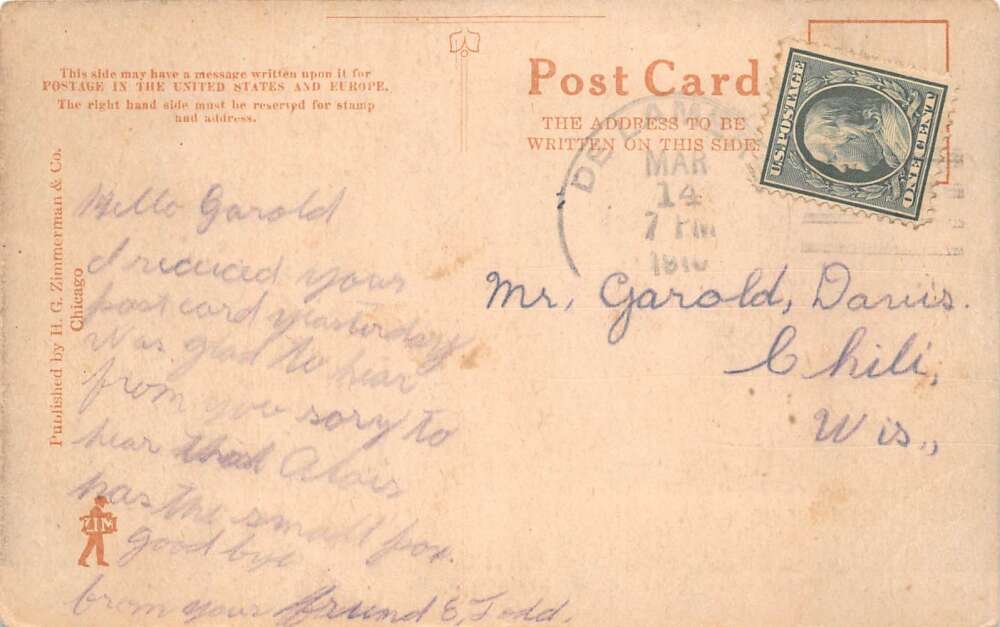 This side may have a message written upon it for
POSTAGE IN THE UNITED STATES AND EUROPE.
The right hand side must be reserved for stamp
and address.
Post Card
THE ADDRESS TO BE
WRITTEN ON THIS SIDE
U.S. POSTAGE
ONE CENT
MAR
14
7 PM
Published by H. G. Zimmerman & Co.
Chicago
ZIM
Hello Garold
I recieced your
postcard yeasterday
Was glad to hear
from you sory to
hear that Alois
has the small pox.
Good bye
from your friend E, Todd.
Mr, Garold, Davis.
Chili,
Wis.,